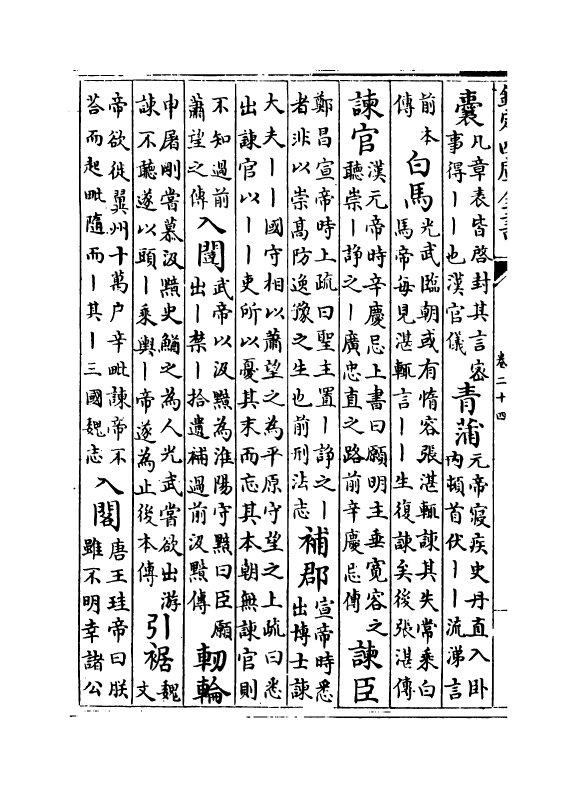 欽定四庫全書
卷二十四
囊 凡章表皆啓封其言密
事得丨丨也漢官儀 青蒲 元帝寢疾史丹直入卧
内頓首伏丨丨流涕言
前本
傳 白馬 光武臨朝或有惰容張湛輒諫其失常乘白
馬帝每見湛輒言丨丨生復諫矣後張湛傳
諫官 漢元帝時辛慶忌上書曰願明主垂寛容之
聽崇丨諍之丨廣忠直之路前辛慶忌傳 諫臣
鄭昌宣帝時上疏曰聖主置丨諍之丨
者非以崇髙防逸豫之生也前刑法志 補郡 宣帝時悉
出博士諫
大夫丨丨國守相以蕭望之為平原守望之上疏曰悉
出諫官以丨丨吏所以憂其末而忘其本朝無諫官則
不知過前
蕭望之傳 入闥 武帝以汲黯為淮陽守黯曰臣願
出丨禁丨拾遺補過前汲黯傳 軔輪
申屠剛嘗慕汲黯史鰌之為人光武嘗欲出游
諫不聽遂以頭丨乘輿丨帝遂為止後本傳 引裾 魏
文
帝欲徙冀州十萬户辛毗諫帝不
荅而起毗隨而丨其丨三國魏志 入閤 唐王珪帝曰朕
雖不明幸諸公